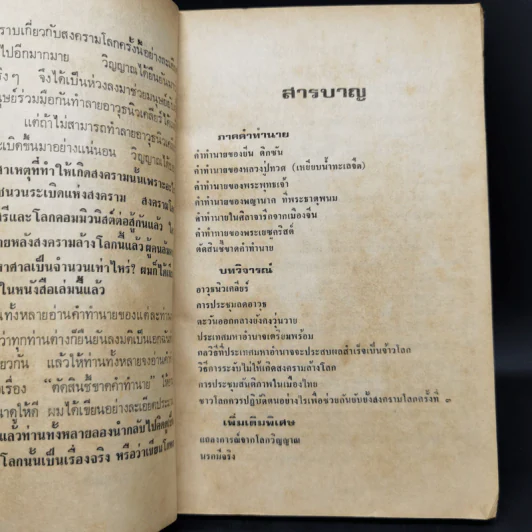 ราบเกี่ยวกับสงครามโลกครั้งนี้อย่างละเอียด
ไปอีกมากมาย วิญญาณได้ยืนยันมา
ริงๆ จึงได้เป็นห่วงลงมาช่วยมนุษย์
นุษย์ร่วมมือกันทำลายอาวุธนิวเคลียร์ได้
แต่ถ้าไม่สามารถทำลายอาวุธนิวเคลีย
ะเบิดขึ้นมาอย่างแน่นอน วิญญาณได้
าเหตุที่ทำให้เกิดสงครามนั้นเพราะ
ชนวนระเบิดแห่งสงคราม สงครามโล
รีและโลกคอมมิวนิสต์ต่อสู้กันแล้ว
ายหลังสงครามล้างโลกนี้แล้ว ผู้คนล้ม
าศาลเป็นจำนวนเท่าไหร่? ผมก็ได้
ในหนังสือเล่มนี้แล้ว
ทั้งหลายอ่านคำทำนายของแต่ละท่าน
ว่าทุกท่านต่างก็ยืนยันลงมติเป็นเอกฉัน
ยวกัน แล้วให้ท่านทั้งหลายจงอ่านคำ
เรื่อง "ตัดสินชี้ขาดคำทำนาย"
นาดูให้ดี ผมได้เขียนอย่างละเอียด
แล้วท่านทั้งหลายลองนำกลับไปคิดดู
โลกนั้นเป็นเรื่องจริง หรือว่าเขียน
สารบาญ
ภาคคำทำนาย
คำทำนายของยีน ดิกซัน
คำทำนายของหลวงปู่ทวด (เหยียบน้ำทะเลจืด)
คำทำนายของพระพุทธเจ้า
คำทำนายของพญานาค ที่พระธาตุพนม
คำทำนายในศิลาจารึกจากเมืองจีน
คำทำนายของพระเยซูคริสต์
ตัดสินชี้ขาดคำทำนาย
บทวิจารณ์
อาวุธนิวเคลียร์
การประชุมลดอาวุธ
ตะวันออกกลางยังคงวุ่นวาย
ประเทศมหาอำนาจเตรียมพร้อม
กลวิธีที่ประเทศมหาอำนาจจะประสบผลสำเร็จเป็นเจ้าโลก
วิธีการระงับไม่ให้เกิดสงครามล้างโลก
การประชุมสันติภาพในเมืองไทย
ชาวโลกควรปฏิบัติตนอย่างไรเพื่อช่วยกันยับยั้งสงครามโลกครั้งที่ ๓
เพิ่มเติมพิเศษ
แถลงการณ์จากโลกวิญญาณ
นรกมีจริง